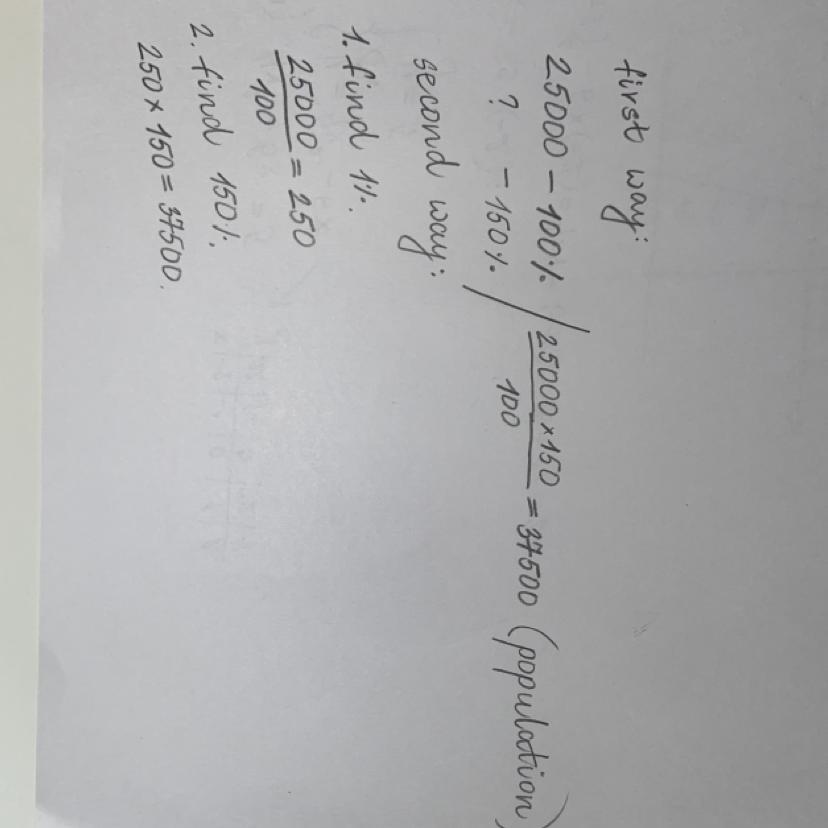 first way:
25000 – 100%
? – 150%
25000 × 150
100
= 37500 (population)
second way:
1. find 1%.
25000
100
= 250
2. find 150%.
250 × 150 = 37500.